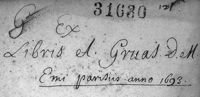 31680
Ex
Libris A. Gruas d.M.
Emi parisiis anno 1693.